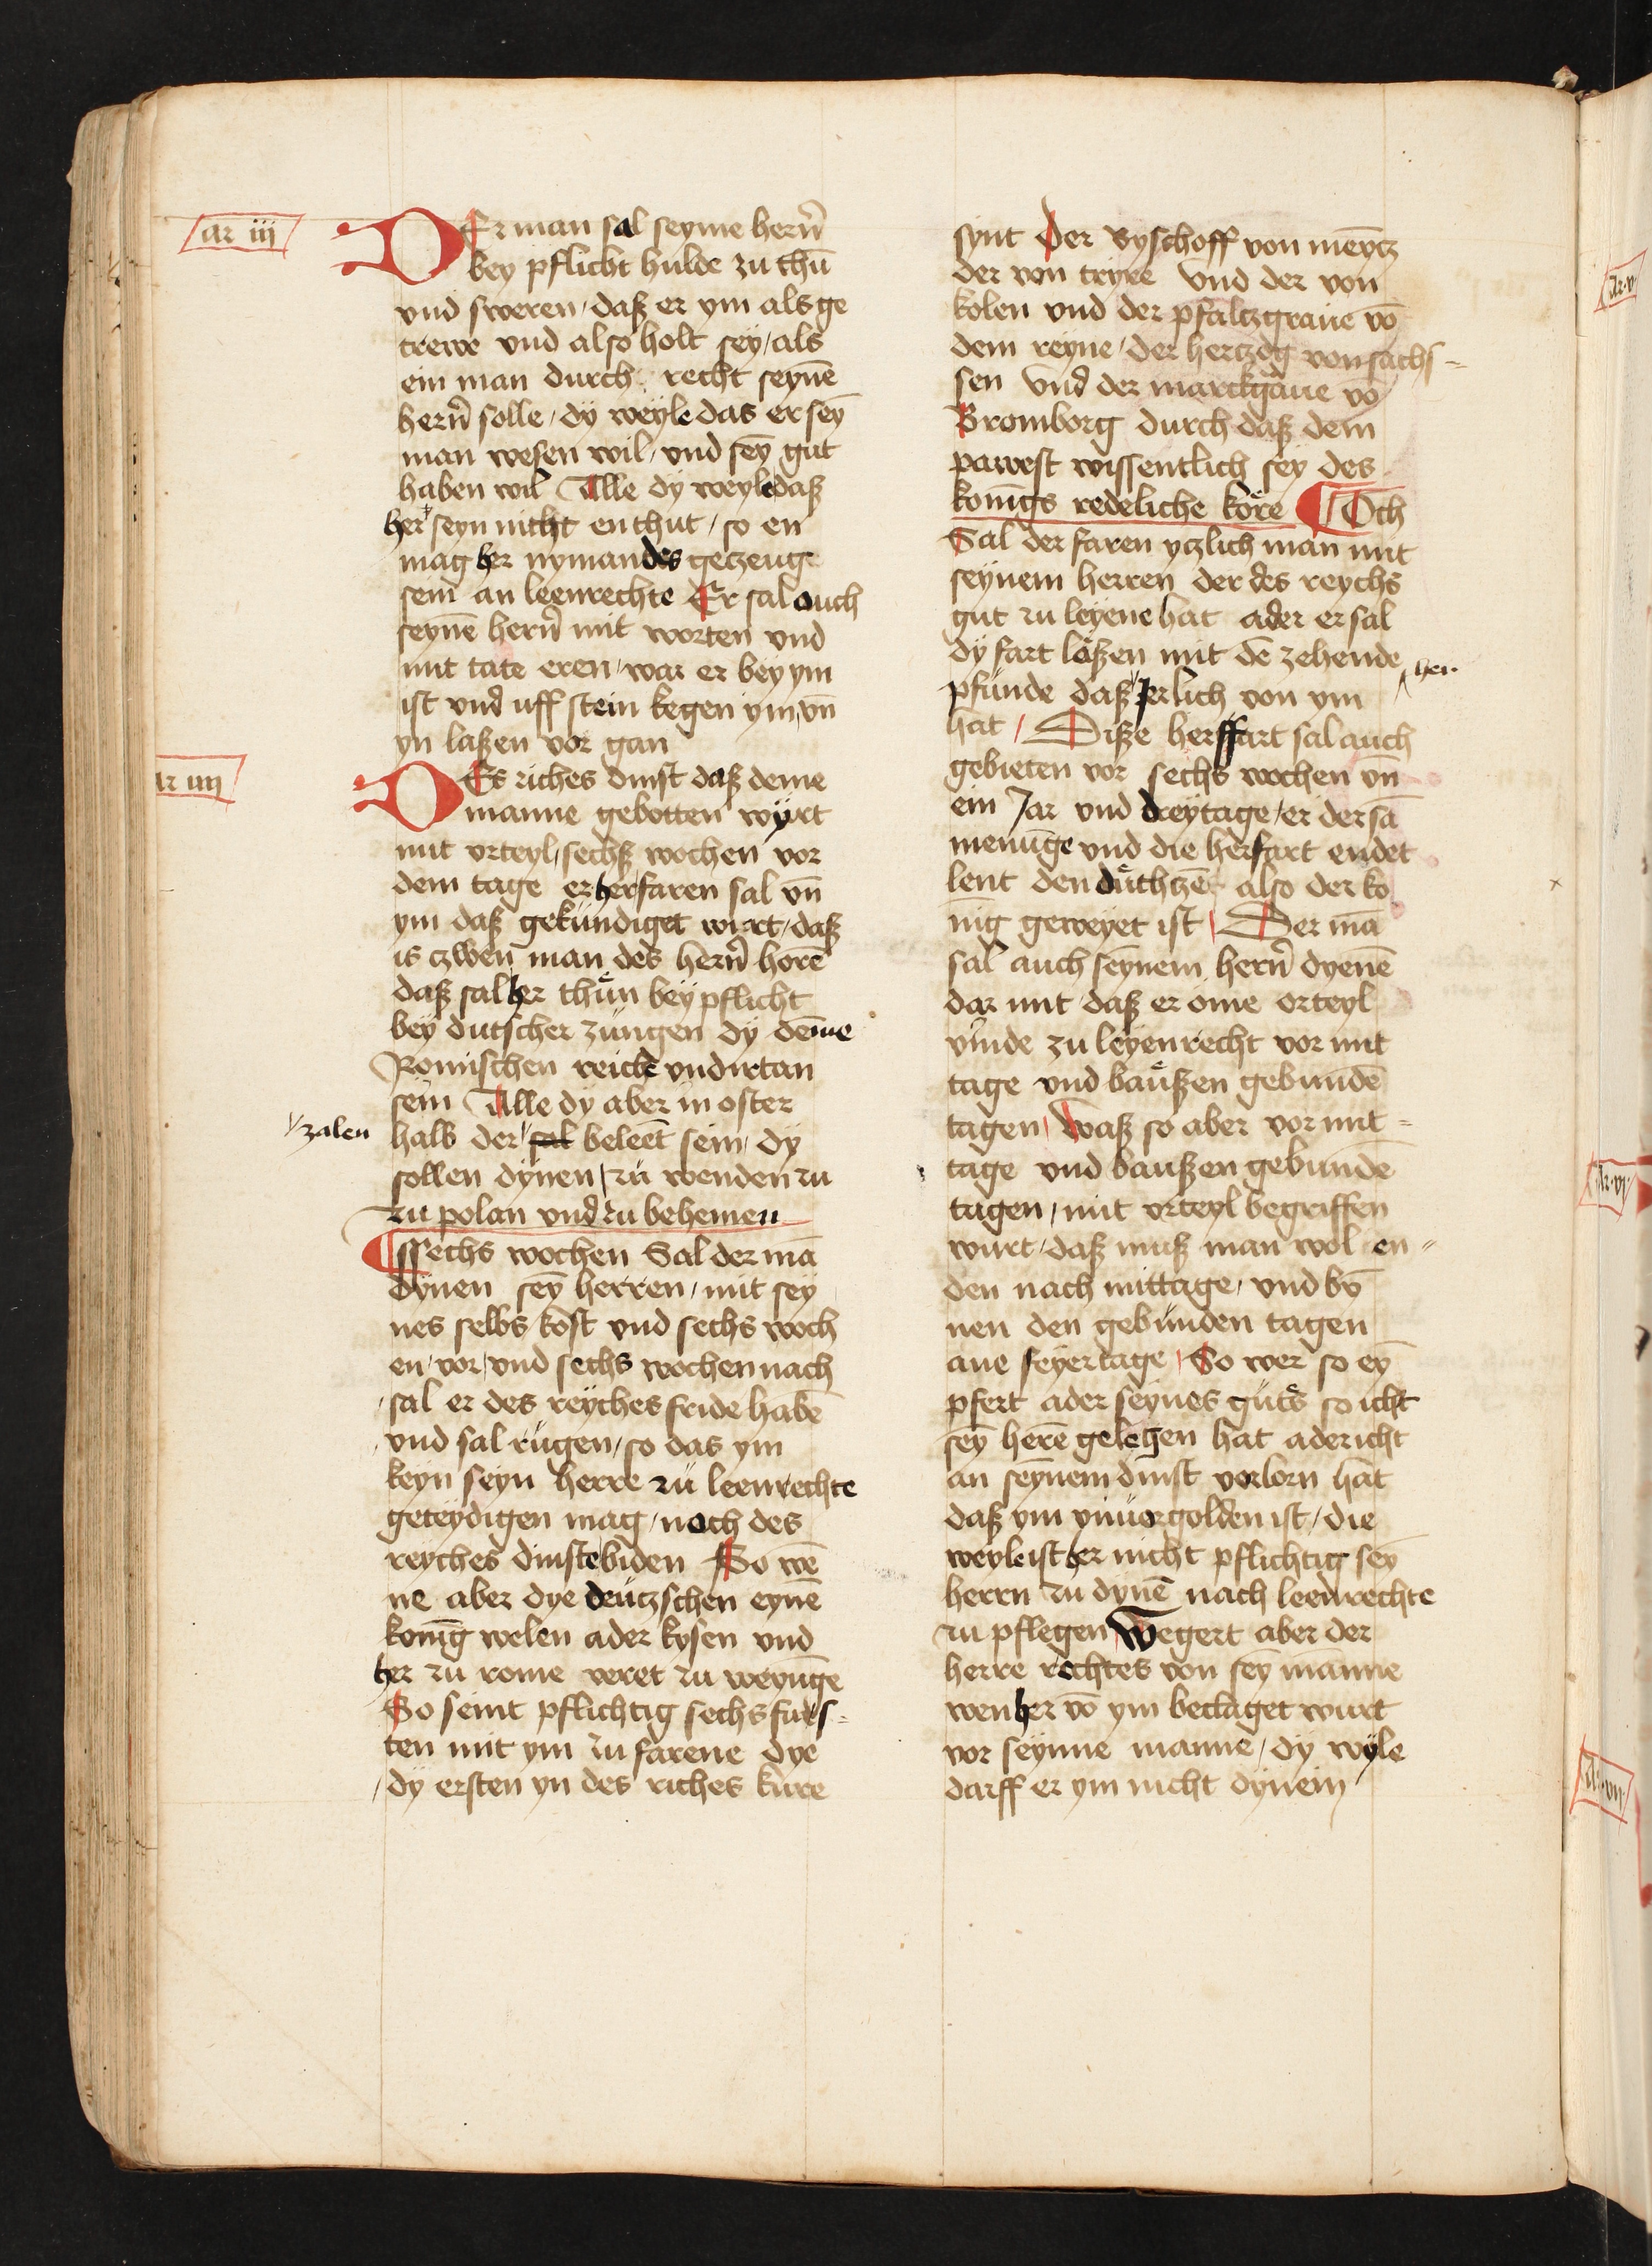 ar iii
DEr man sal seyme hern̄
bey pflicht hulde zu thū
vnd sweren / daß er ym als ge
trewe vnd also holt sey / als
ein man durch recht seynē
hern̄ solle / dÿ weyle das er sey̅
man wesen wil / vnd sey̅ gut
haben wil Alle dÿ weyle daß
her seyn nicht en thut / so en
mag her nymandes getzeuge
sein an leenrechte Er sal ouch
seynē hern̄ mit worten vnd
mit tate eren / war er bey ym
ist vnd uff stein kegen ym / vn̄
yn laßen vor gan
ar iiij
DEs riches dinst daß deme
manne gebotten wÿrt
mit vrteyl / sechß wochen vor
dem tage er herfaren sal vn̄
ym daß gekundiget wirt / daß
is czwen man des hern̄ horē
daß sal her thün bey pflicht
bey dutscher zungen dÿ deme
Romischen reiche vndirtan
sein Alle dÿ aber in oster
zalen
halb der sal beleet sein / dÿ
sollen dynen / zu wenden zu
zu polan vnd zu behemen
¶ Sechs wochen Sal der mā
dynen sey̅ herren / mit sey
nes selbs kost vnd sechs woch
en / vor / vnd sechs wochen nach
/ sal er des reyches fride habē
/ vnd sal rugen / so das ym
keyn seyn herre zu leenrechte
geteydigen mag / noch des
reyches dinste biden So wē
ne aber dye deutzschen eynē
konig welen ader kysen vnd
her zu rome veret zu weyunge
So seint pflichtig sechs furs-
ten mit ym zu farene dye
/ dÿ ersten yn des riches kure
synt Der Byschoff von meyntz
der von tryre vnd der von
kolen vnd der pfaltzgraue vō
dem reyne / der hertzog von sachs-
sen vnd der marckgraue vō
Bromborg durch daß dem
pawest wissentlich sey des
konigs redeliche köre ¶ Och
Sal der faren yczlich man mit
seynem herren der des reychs
gut zu leyene hat ader er sal
dÿ fart lößen mit dē zehende
her
pfunde daß jerlich von ym
hat / Diße herffart sal auch
gebieten vor sechs wochen vn̄
ein Jar vnd dreytage / er der sā
menunge vnd die herfart endet
lent den düthzē also der ko
nig geweyet ist Der mā
sal auch seynem hern̄ dyenē
dar mit daß er öme orteyl
vinde zu leyenrecht vor mit
tage vnd baußen gebundē
tagen / Waß so aber vor mit-
tage vnd baußen gebunde
tagen / mit vrteyl begriffen
wurt / daß muß man wol en-
den nach mittage / vnd by̅
nen den gebunden tagen
ane feyertage / So wer so ey̅
pfert ader seynes guts so icht
sey̅ herē gelehen hat ader icht
an seynem dinst vorlorn hat
daß ym vnuorgolden ist / die
weyle ist her nicht pflichtig sey̅
herrn zu dynē nach leenrechte
zu pflegen Wegert aber der
herre rechtes von sey̅ manne
wen her vō ym beclaget wurt
vor seyme manne / dÿ wyle
darff er ym nicht dynem
ar v
ar vj
ar vij